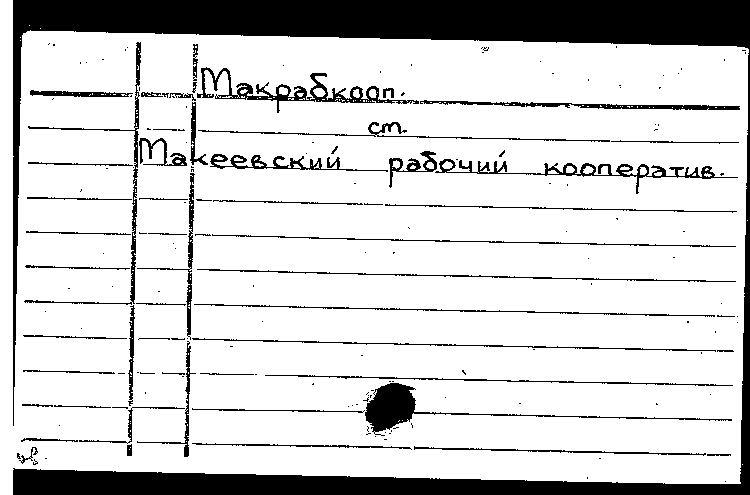 Макрабкооп.
ст.
Макеевский рабочий кооператив.